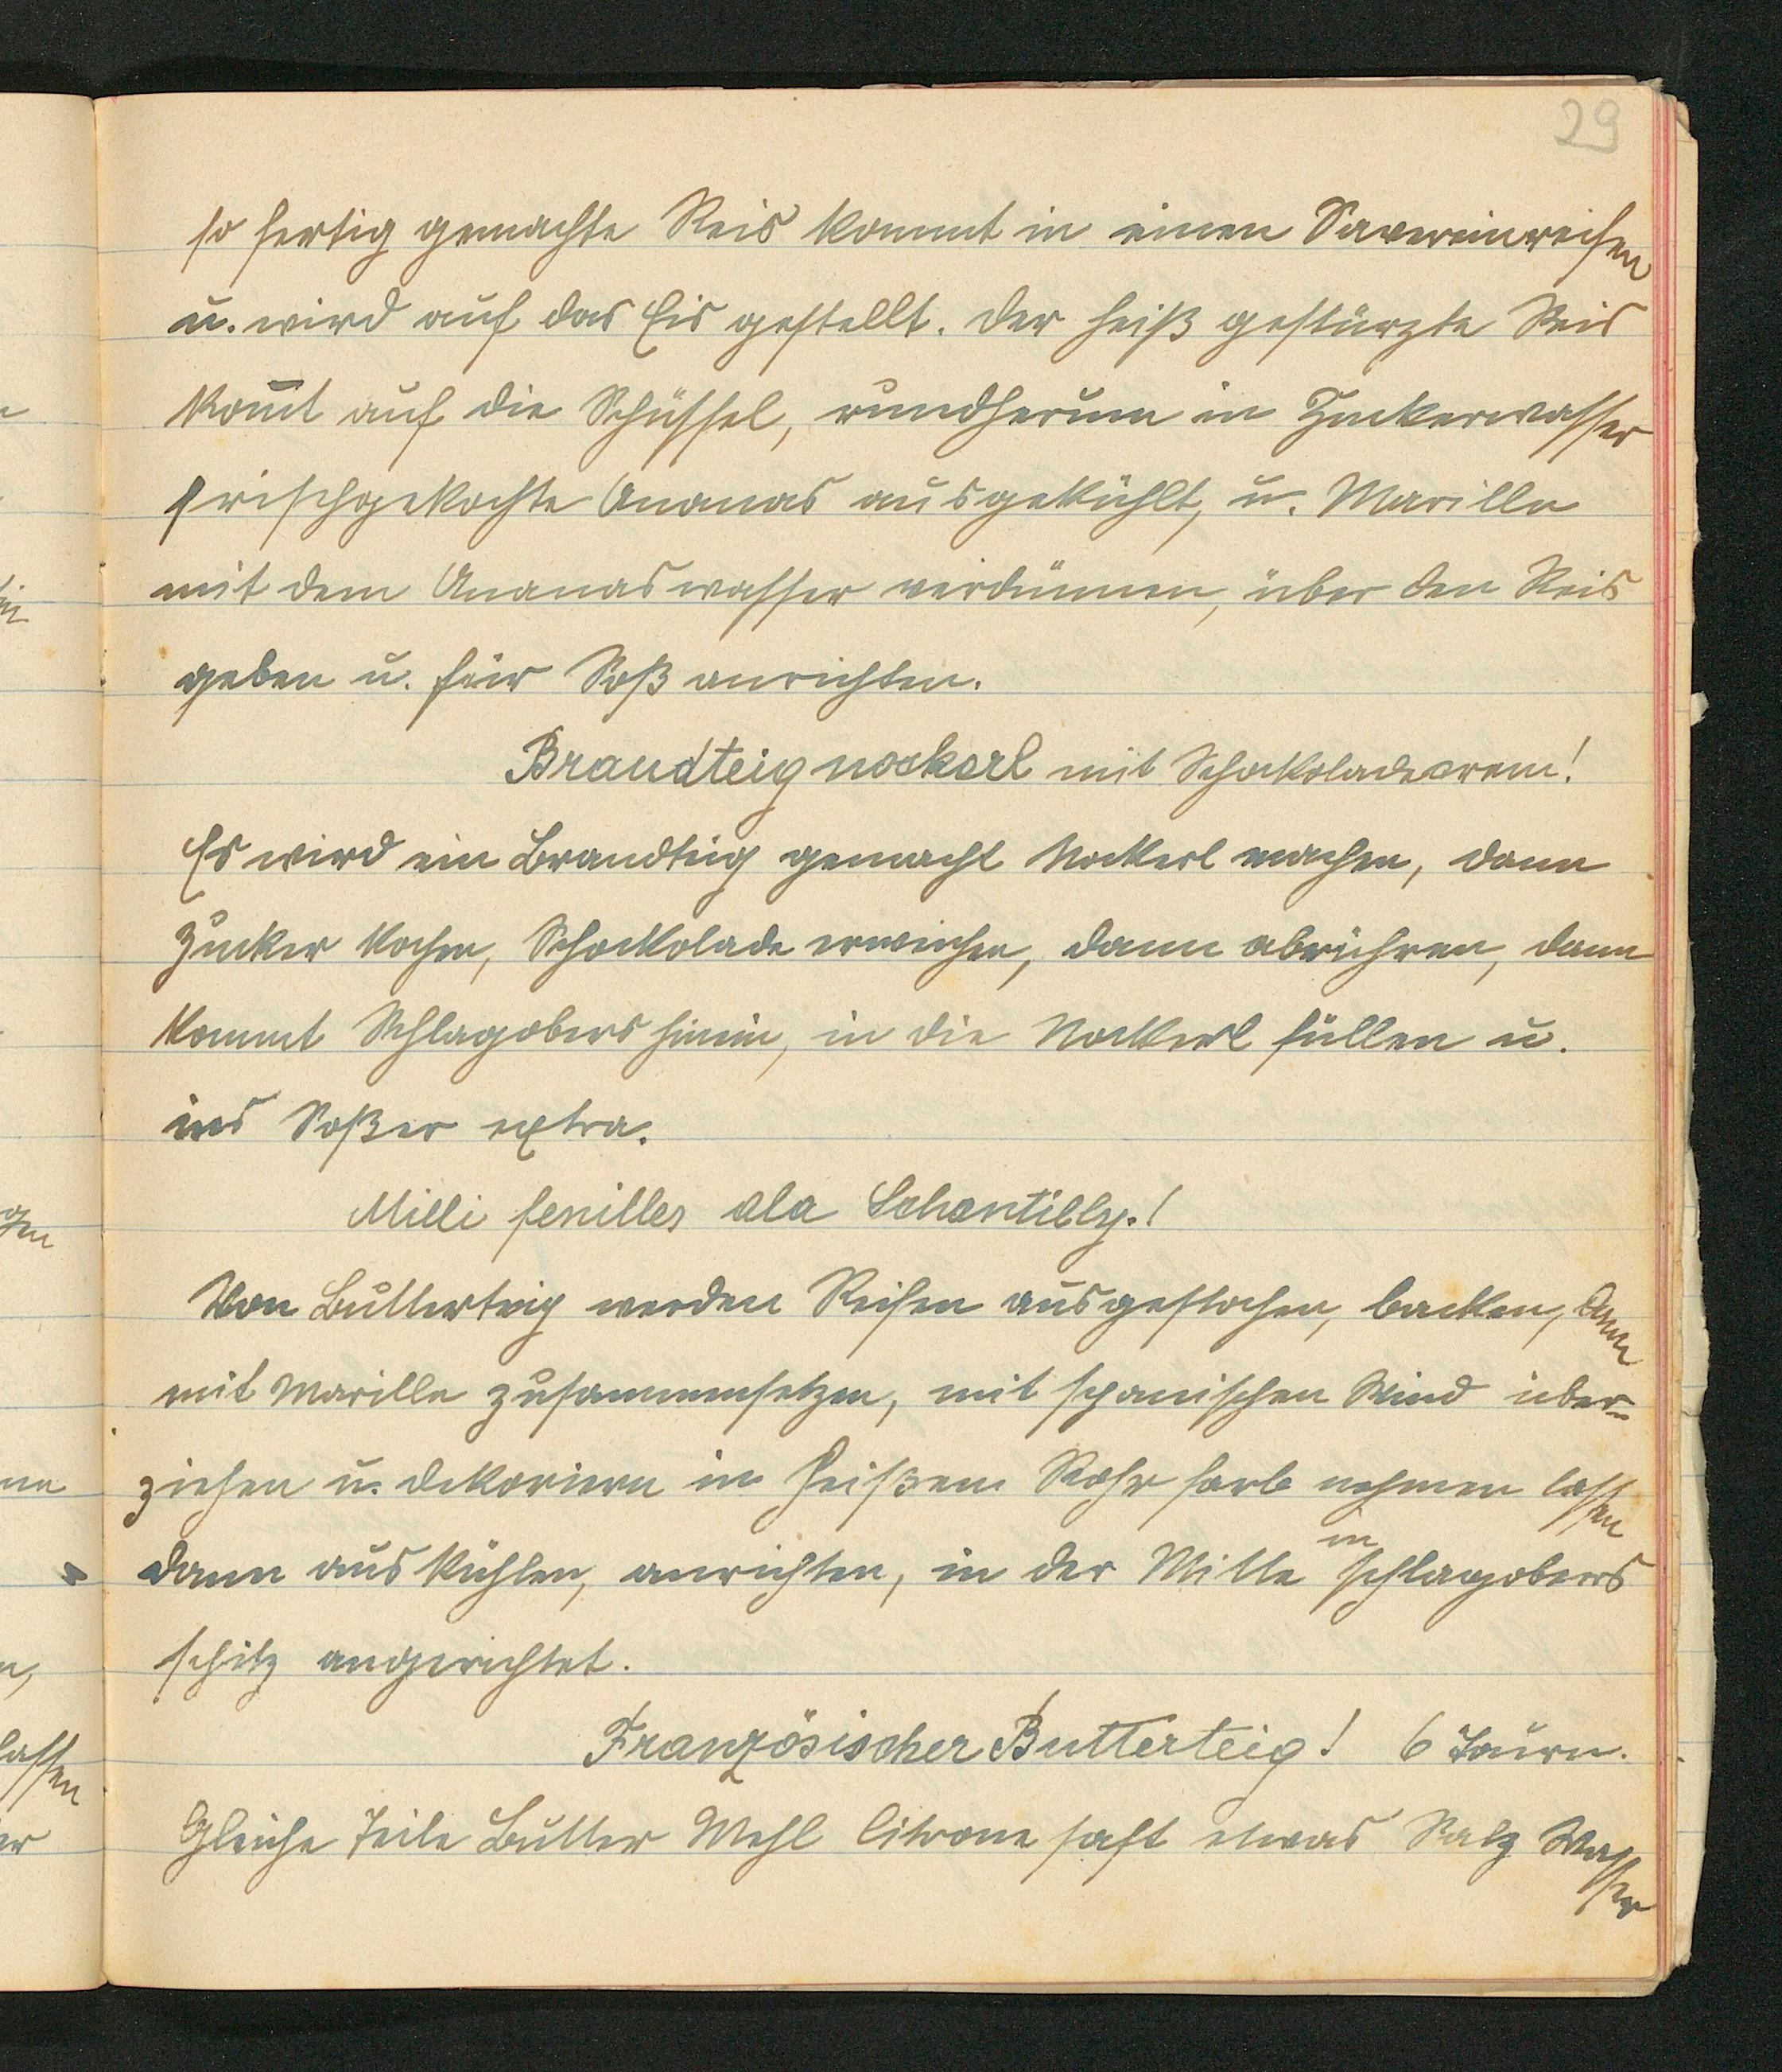 29
so fertig gemachte Reis kommt in einen Savereinreifen
u. wird auf das Eis gestellt. Der heiß gestürzte Reis
kom̅t auf die Schüssel, rundherum in Zuckerwasser
frischgekochte Ananas ausgekühlt, u. Marille
mit dem Ananaswasser verdünnen, über den Reis
geben u. für Soß anrichten.
Brandteignockerl mit Schokoladecrem!
Es wird ein Brandteig gemacht Nockerl machen, dann
Zucker kochen, Schockolade erweichen, dann abrühren, dann
kommt Schlagobers hinein, in die Nockerl füllen u.
ins Soßer extra.
Milli feuilles ala Schantilly.!
Von Butterteig werden Reifen ausgestochen, backen, dann
mit Marille zusammensetzen, mit spanischen Wind über-
ziehen u. dekorieren in heißem Rohr farb nehmen lassen
dann auskühlen, anrichten, in der Mitte in schlagobers
schitz angerichtet.
Französischer Butterteig! 6 Tourn.
Gleiche Teile Butter Mehl Citrone saft etwas Salz Wasser